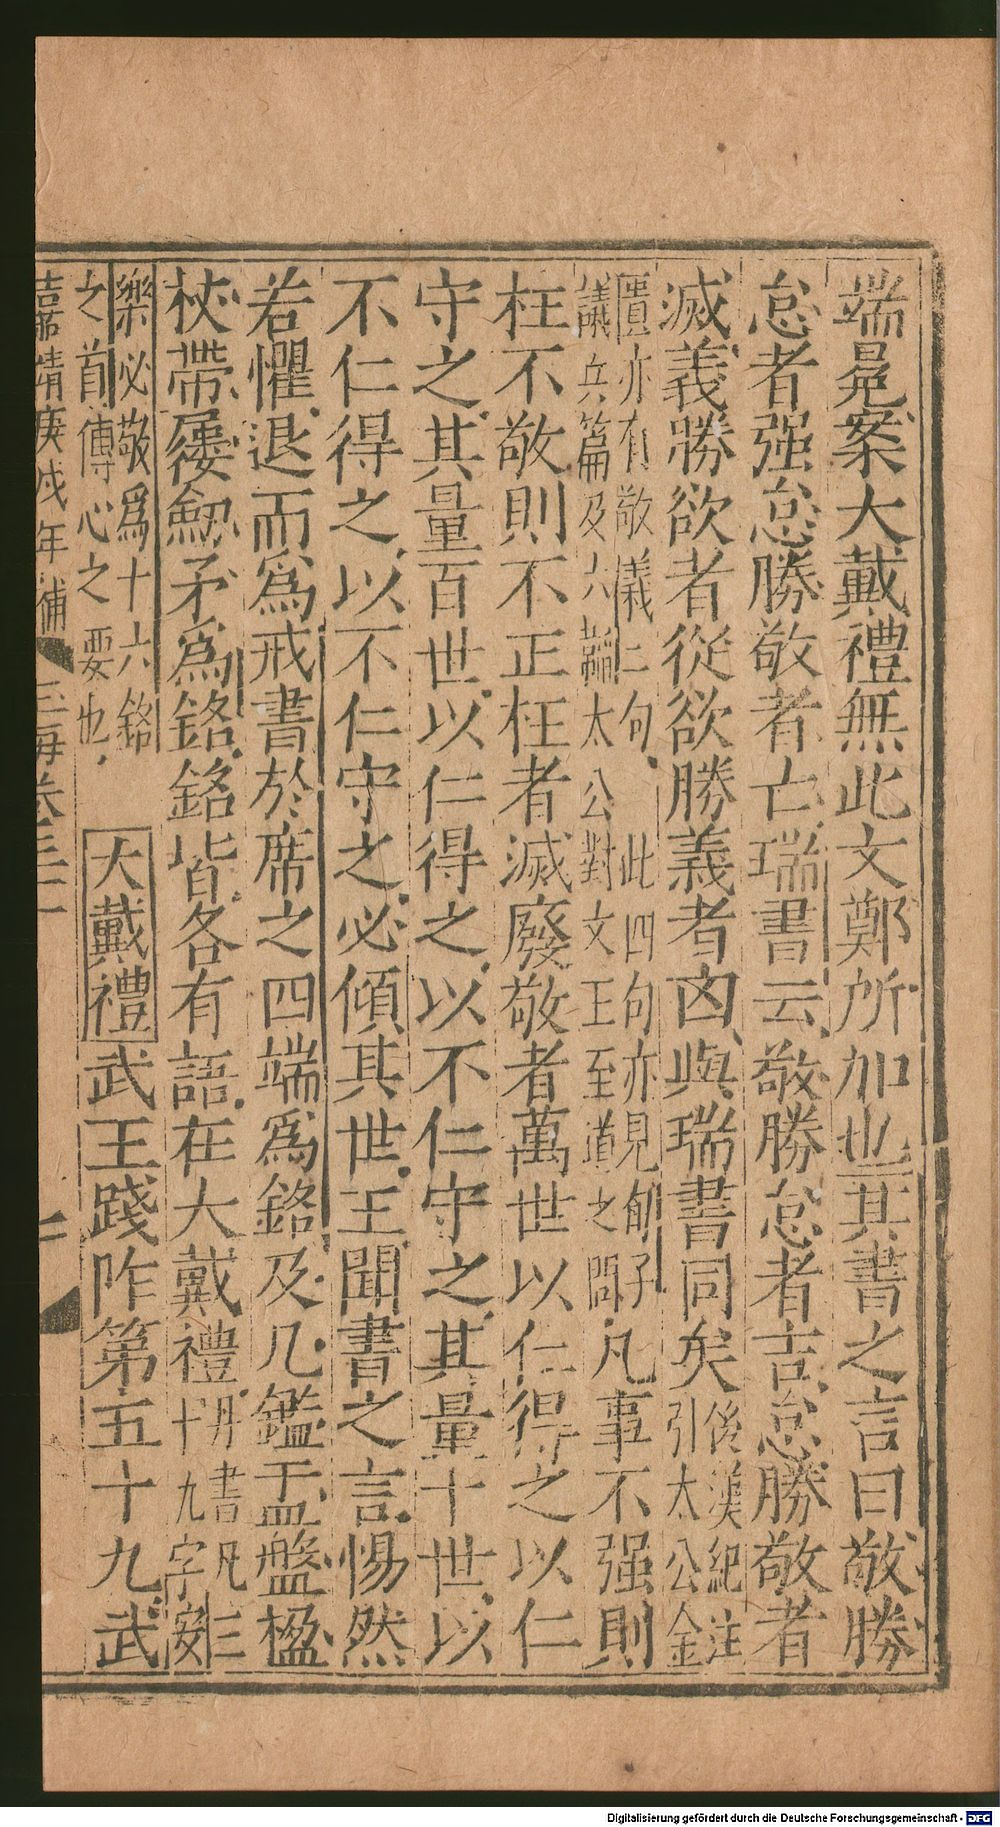 端冕案大戴禮無此文鄭所加也其書之言曰敬勝
怠者强怠勝敬者亡瑞書云敬勝怠者吉怠勝敬者
滅義勝欲者從欲勝義者凶與瑞書同矣後漢紀注引太公金
匱亦有敬義二句此四句亦見荀子議兵篇及六韜太公對文王至道之問凡事不强則
枉不敬則不正枉者滅廢敬者萬世以仁得之以仁
守之其量百世以仁得之以不仁守之其量十世以
不仁得之以不仁守之必傾其世王聞書之言惕然
若懼退而爲戒書於席之四端爲銘及几鑑盂盤楹
杖帶屨劒矛爲銘銘皆各有語在大戴禮丹書凡三十九字安
樂必敬爲十六銘之首傳心之要也大戴禮武王踐阼第五十九武
嘉靖庚戌年補 玉海卷三十一 二
Digitalisierung gefördert durch die Deutsche Forschungsgemeinschaft - DFG